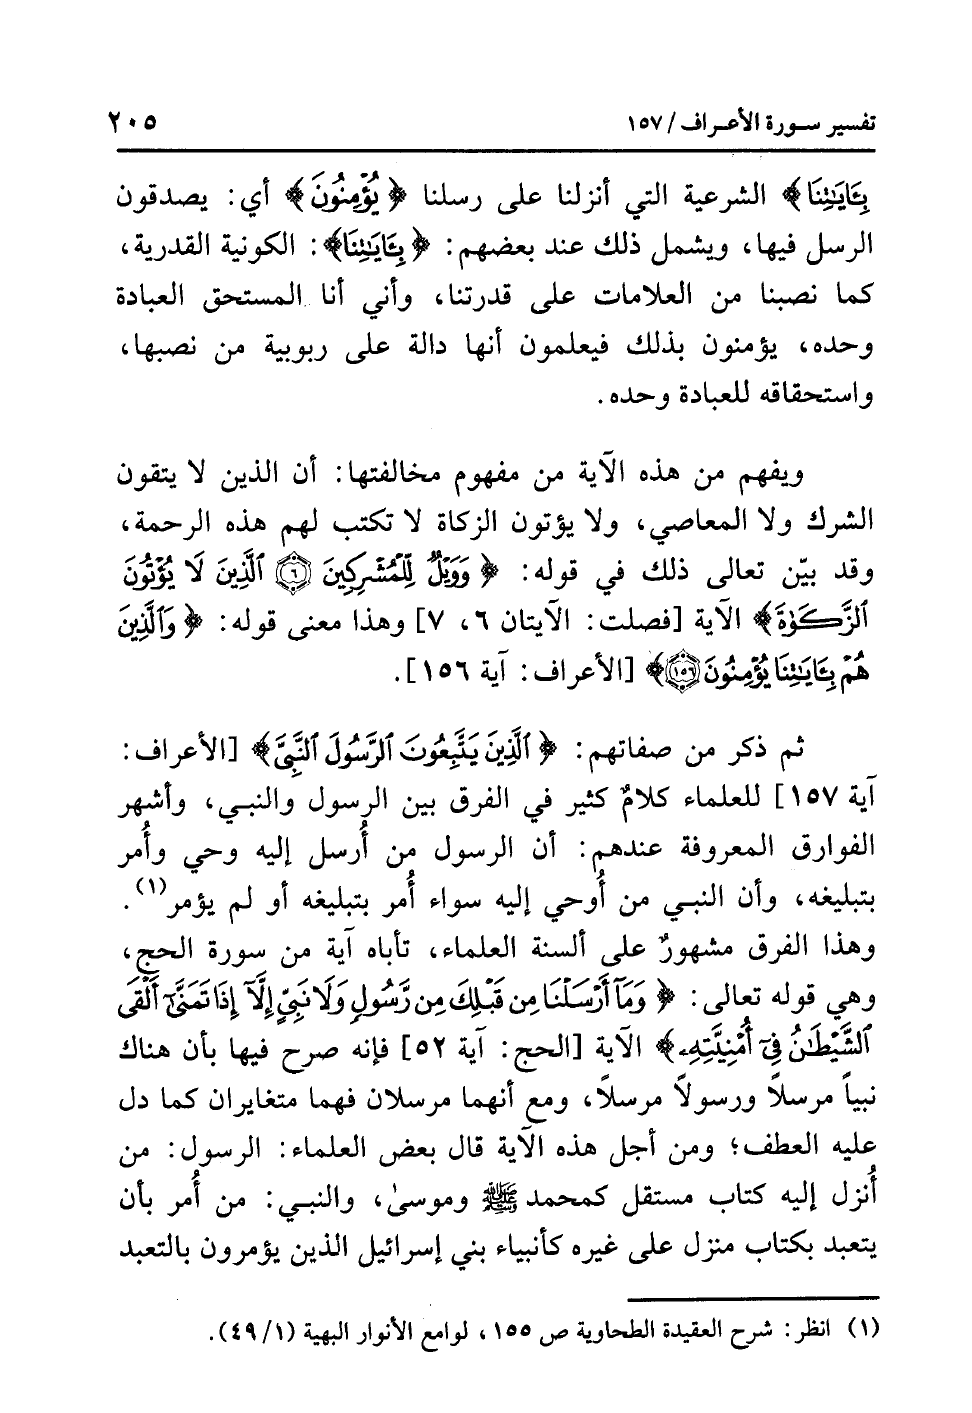 تفسير سورة الأعراف/ ١٥٧ ٢٠٥
بِـَٔايَٰتِنَا﴾ الشرعية التي أنزلنا على رسلنا ﴿يُؤْمِنُونَ﴾ أي: يصدقون
الرسل فيها، ويشمل ذلك عند بعضهم: ﴿بِـَٔايَٰتِنَا﴾: الكونية القدرية،
كما نصبنا من العلامات على قدرتنا، وأني أنا المستحق العبادة
وحده، يؤمنون بذلك فيعلمون أنها دالة على ربوبية من نصبها،
واستحقاقه للعبادة وحده.
ويفهم من هذه الآية من مفهوم مخالفتها: أن الذين لا يتقون
الشرك ولا المعاصي، ولا يؤتون الزكاة لا تكتب لهم هذه الرحمة،
وقد بيّن تعالى ذلك في قوله: ﴿وَوَيْلٌ لِّلْمُشْرِكِينَ ٦ ٱلَّذِينَ لَا يُؤْتُونَ
ٱلزَّكَوٰةَ﴾ الآية [فصلت: الآيتان ٦، ٧] وهذا معنى قوله: ﴿وَٱلَّذِينَ
هُم بِـَٔايَٰتِنَا يُؤْمِنُونَ ١٥٦﴾ [الأعراف: آية ١٥٦].
ثم ذكر من صفاتهم: ﴿ٱلَّذِينَ يَتَّبِعُونَ ٱلرَّسُولَ ٱلنَّبِىَّ﴾ [الأعراف:
آية ١٥٧] للعلماء كلامٌ كثير في الفرق بين الرسول والنبي، وأشهر
الفوارق المعروفة عندهم: أن الرسول من أُرسل إليه وحي وأُمر
بتبليغه، وأن النبي من أُوحي إليه سواء أُمر بتبليغه أو لم يؤمر(١).
وهذا الفرق مشهورٌ على ألسنة العلماء، تأباه آية من سورة الحج،
وهي قوله تعالى: ﴿وَمَآ أَرْسَلْنَا مِن قَبْلِكَ مِن رَّسُولٍ وَلَا نَبِىٍّ إِلَّآ إِذَا تَمَنَّىٰٓ أَلْقَى
ٱلشَّيْطَٰنُ فِىٓ أُمْنِيَّتِهِۦ﴾ الآية [الحج: آية ٥٢] فإنه صرح فيها بأن هناك
نبياً مرسلاً ورسولاً مرسلاً، ومع أنهما مرسلان فهما متغايران كما دل
عليه العطف؛ ومن أجل هذه الآية قال بعض العلماء: الرسول: من
أُنزل إليه كتاب مستقل كمحمد ﷺ وموسىٰ، والنبي: من أُمر بأن
يتعبد بكتاب منزل على غيره كأنبياء بني إسرائيل الذين يؤمرون بالتعبد
(١) انظر: شرح العقيدة الطحاوية ص ١٥٥، لوامع الأنوار البهية (١/ ٤٩).